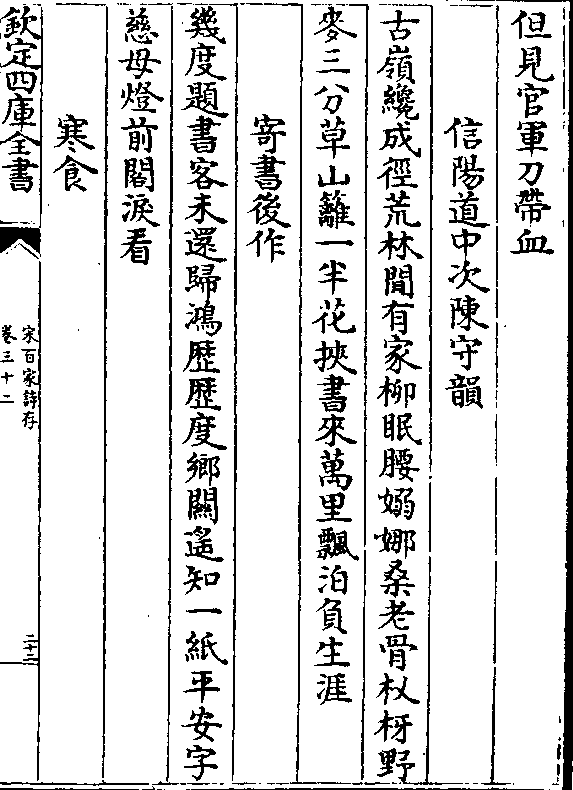 但見官軍刀帶血
信陽道中次陳守韻
古嶺纔成徑荒林間有家柳眠腰嫋娜桑老骨杈枒野
麥三分草山籬一半花挾書來萬里飄泊負生涯
寄書後作
幾度題書客未還歸鴻歴歴度鄉關遙知一紙平安字
慈母燈前閣淚看
寒食
欽定四庫全書
宋百家詩存
卷三十二
二十二